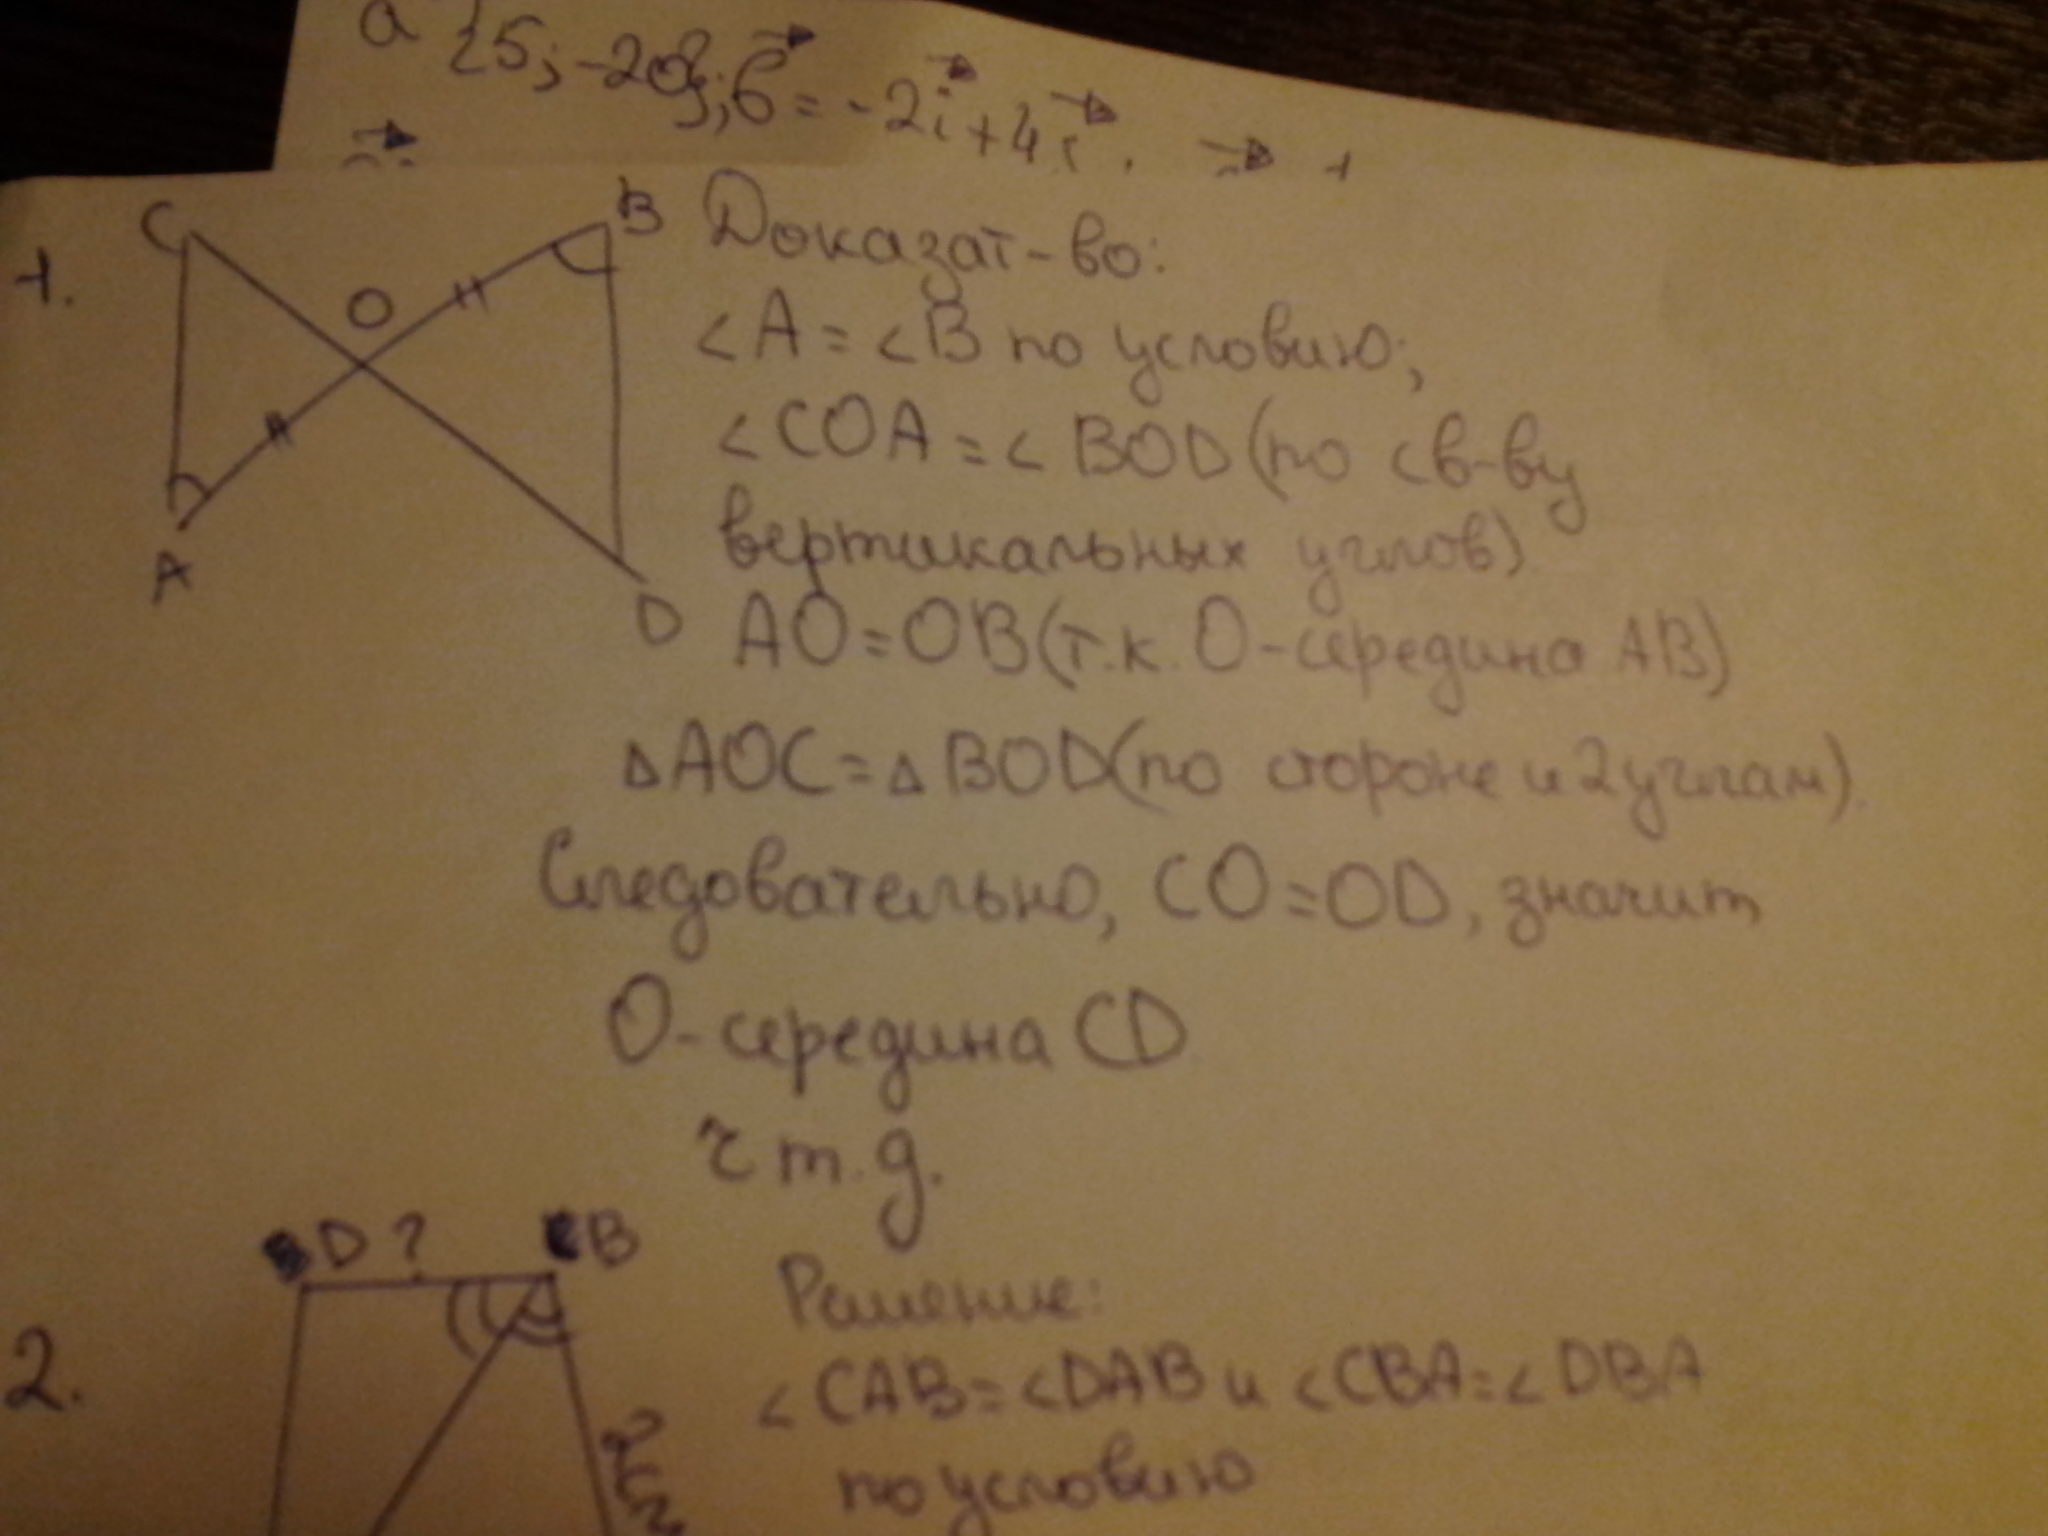 a {5; -20}; b = -2i + 4
1.
C
B
O
A
D
Доказат-во:
<A = <B по условию;
<COA = < BOD (по св-ву
вертикальных углов)
AO = OB (т.к. O-середина AB)
Δ AOC = Δ BOD (по стороне и 2 углам).
Следовательно, CO = OD, значит
O-середина CD
ч т. д.
2.
D ? B
Решение:
< CAB = < DAB и < CBA = < DBA
по условию